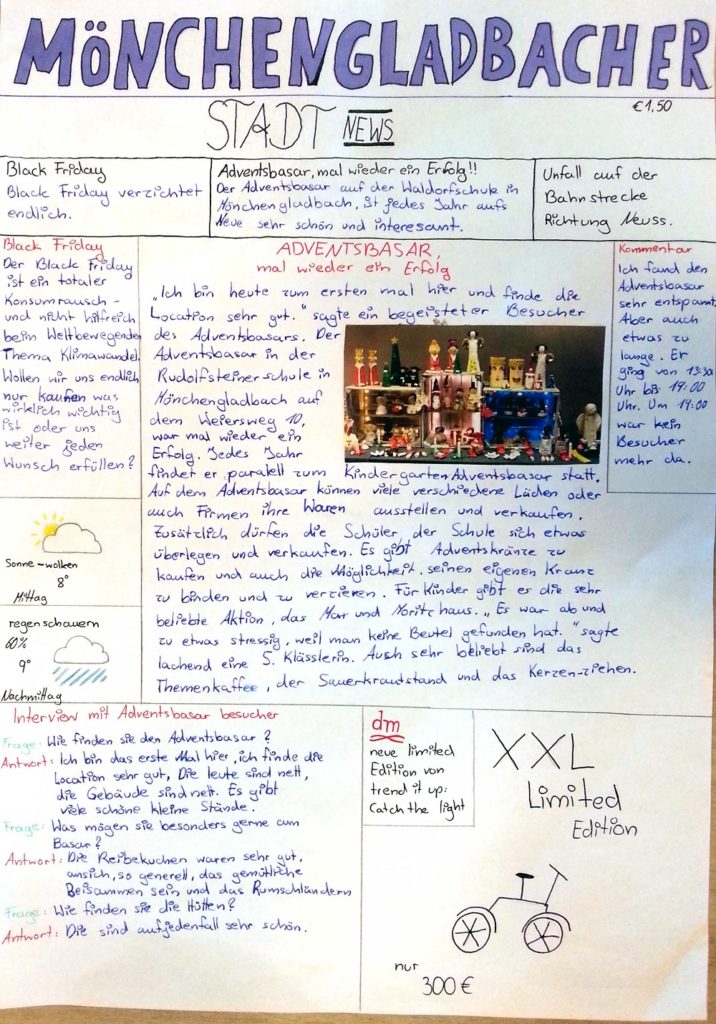 MÖNCHENGLADBACHER
€1,50
STADT NEWS
Black Friday
Black Friday verzichtet
endlich.
Adventsbasar, mal wieder ein Erfolg!!
Der Adventsbasar auf der Waldorfschule in
Mönchengladbach, ist jedes Jahr aufs
Neue sehr schön und interesant.
Unfall auf der
Bahnstrecke
Richtung Neuss.
Black Friday
Der Black Friday
ist ein totaler
Konsumrausch -
und nicht hilfreich
beim Weltbewegenden
Thema Klimawandel.
Wollen wir uns endlich
nur kaufen was
wirklich wichtig
ist oder uns
weiter jeden
Wunsch erfüllen?
ADVENTSBASAR,
mal wieder ein Erfolg
„Ich bin heute zum ersten mal hier und finde die
Location sehr gut." sagte ein begeisteter Besucher
des Adventsbasars. Der
Adventsbasar in der
Rudolfsteinerschule in
Mönchengladbach auf
dem Weiersweg 10,
war mal wieder ein
Erfolg. Jedes Jahr
findet er paralell zum Kindergarten Adventsbasar statt.
Auf dem Adventsbasar können viele verschiedene Läden oder
auch Firmen ihre Waren ausstellen und verkaufen.
Zusätzlich dürfen die Schüler, der Schule sich etwas
überlegen und verkaufen. Es gibt Adventskränze zu
kaufen und auch die Möglichkeit, seinen eigenen Kranz
zu binden und zu verzieren. Für Kinder gibt es die sehr
beliebte Aktion, das Max und Moritzhaus. „Es war ab und
zu etwas stressig, weil man keine Beutel gefunden hat." sagte
lachend eine 5. Klässlerin. Auch sehr beliebt sind das
Themenkaffee, der Sauerkrautstand und das Kerzen-ziehen.
Kommentar
Ich fand den
Adventsbasar
sehr entspannt.
Aber auch
etwas zu
lange. Er
ging von 13:30
Uhr bis 19:00
Uhr. Um 19:00
war kein
Besucher
mehr da.
Sonne-wolken
8°
Mittag
regenschauern
60%
9°
Nachmittag
Interview mit Adventsbasar besucher
Frage: Wie finden sie den Adventsbasar?
Antwort: Ich bin das erste Mal hier, ich finde die
Location sehr gut, Die leute sind nett,
die Gebäude sind nett. Es gibt
viele schöne kleine Stände.
Frage: Was mögen sie besonders gerne am
Basar?
Antwort: Die Reibekuchen waren sehr gut,
ansich, so generell, das gemütliche
Beisammen sein und das Rumschländern
Frage: Wie finden sie die Hütten?
Antwort: Die sind aufjedenfall sehr schön.
dm
neue limited
Edition von
trend it up:
Catch the light
XXL
Limited
Edition
nur
300 €